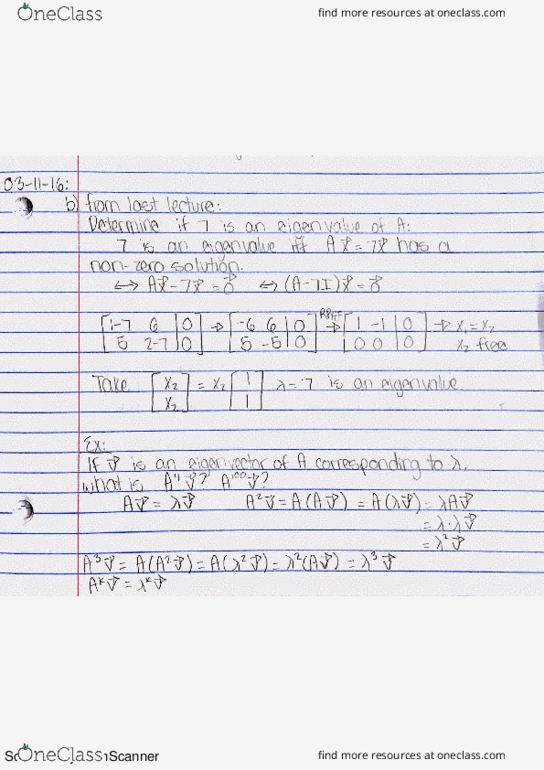 OneClass
find more resources at oneclass.com
03-11-16:
b) from last lecture:
Determine if 7 is an eigenvalue of A:
7 is an eigenvalue iff Ax⃗ = 7x⃗ has a
non-zero solution.
⟺ Ax⃗ - 7x⃗ = 0⃗ ⟺ (A-7I)x⃗ = 0⃗
[1-7 6 | 0] → [-6 6 | 0] RREF → [1 -1 | 0] → x₁ = x₂
[5 2-7 | 0] [5 -5 | 0] [0 0 | 0] x₂ free
Take [x₂] = x₂ [1] λ = 7 is an eigenvalue
[x₂] [1]
Ex:
If v⃗ is an eigenvector of A corresponding to λ,
what is v⃗? A¹⁰⁰v⃗?
Av⃗ = λv⃗ A²v⃗ = A(Av⃗) = A(λv⃗) = λAv⃗
= λ·λv⃗
= λ²v⃗
A³v⃗ = A(A²v⃗) = A(λ²v⃗) = λ²(Av⃗) = λ³v⃗
Aᵏv⃗ = λᵏv⃗
OneClass
Scanner
find more resources at oneclass.com